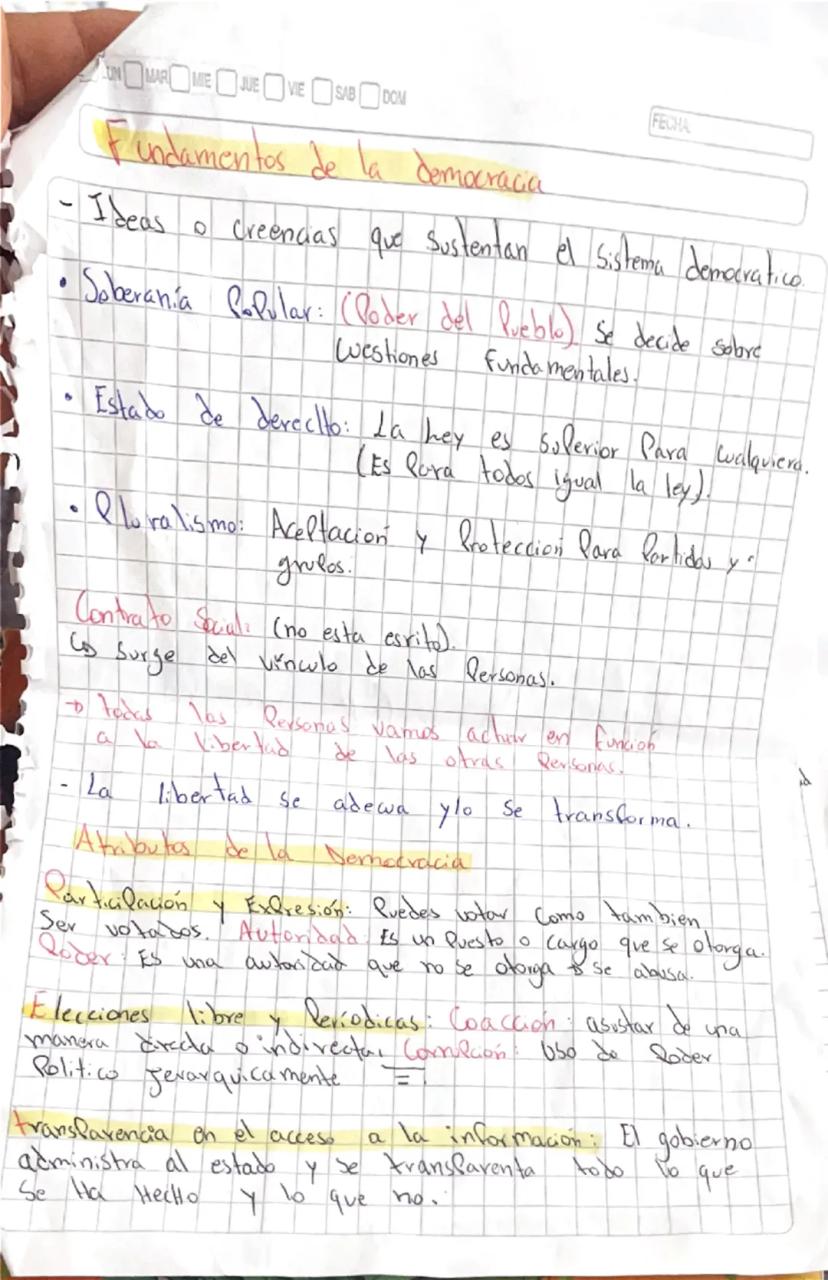 LUN MAR MIE JUE VIE SAB DOM
FECHA
Fundamentos de la democracia
- Ideas o creencias que sustentan el sistema democratico.
• Soberanía Popular: (Poder del Pueblo) Se decide sobre
cuestiones fundamentales.
• Estado de derecho: La ley es superior Para cualquiera.
(Es Para todos igual la ley).
• Pluralismo: Aceptacion y Proteccion Para Partidos y
grupos.
Contrato Social: (no esta esrito).
↳ Surge del vinculo de las Personas.
→ todas las Personas vamos actuar en función
a la libertad de las otras Personas.
- La libertad se adecua y/o se transforma.
Atributos de la Democracia
Participación y Expresión: Puedes votar Como tambien
Ser votados. Autoridad: Es un Puesto o cargo que se otorga.
Poder: Es una autoridad que no se otorga → se abusa.
Elecciones libre y Períodicas: Coaccion: asustar de una
manera directa o indirecta. Corrupcion: Uso de Poder
Politico jerarquicamente
transparencia en el acceso a la información: El gobierno
administra al estado y se transparenta todo lo que
Se Ha Hecho y lo que no.